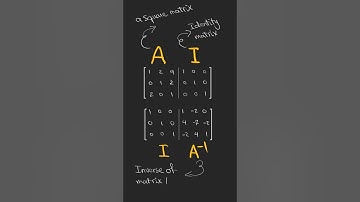 a square matrix
Identity
matrix
A I
1 2 4 1 0 0
0 1 2 0 1 0
2 0 1 0 0 1
1 0 0 1 -2 0
0 1 0 4 -7 -2
0 0 1 -2 4 1
I A⁻¹
Inverse of
matrix